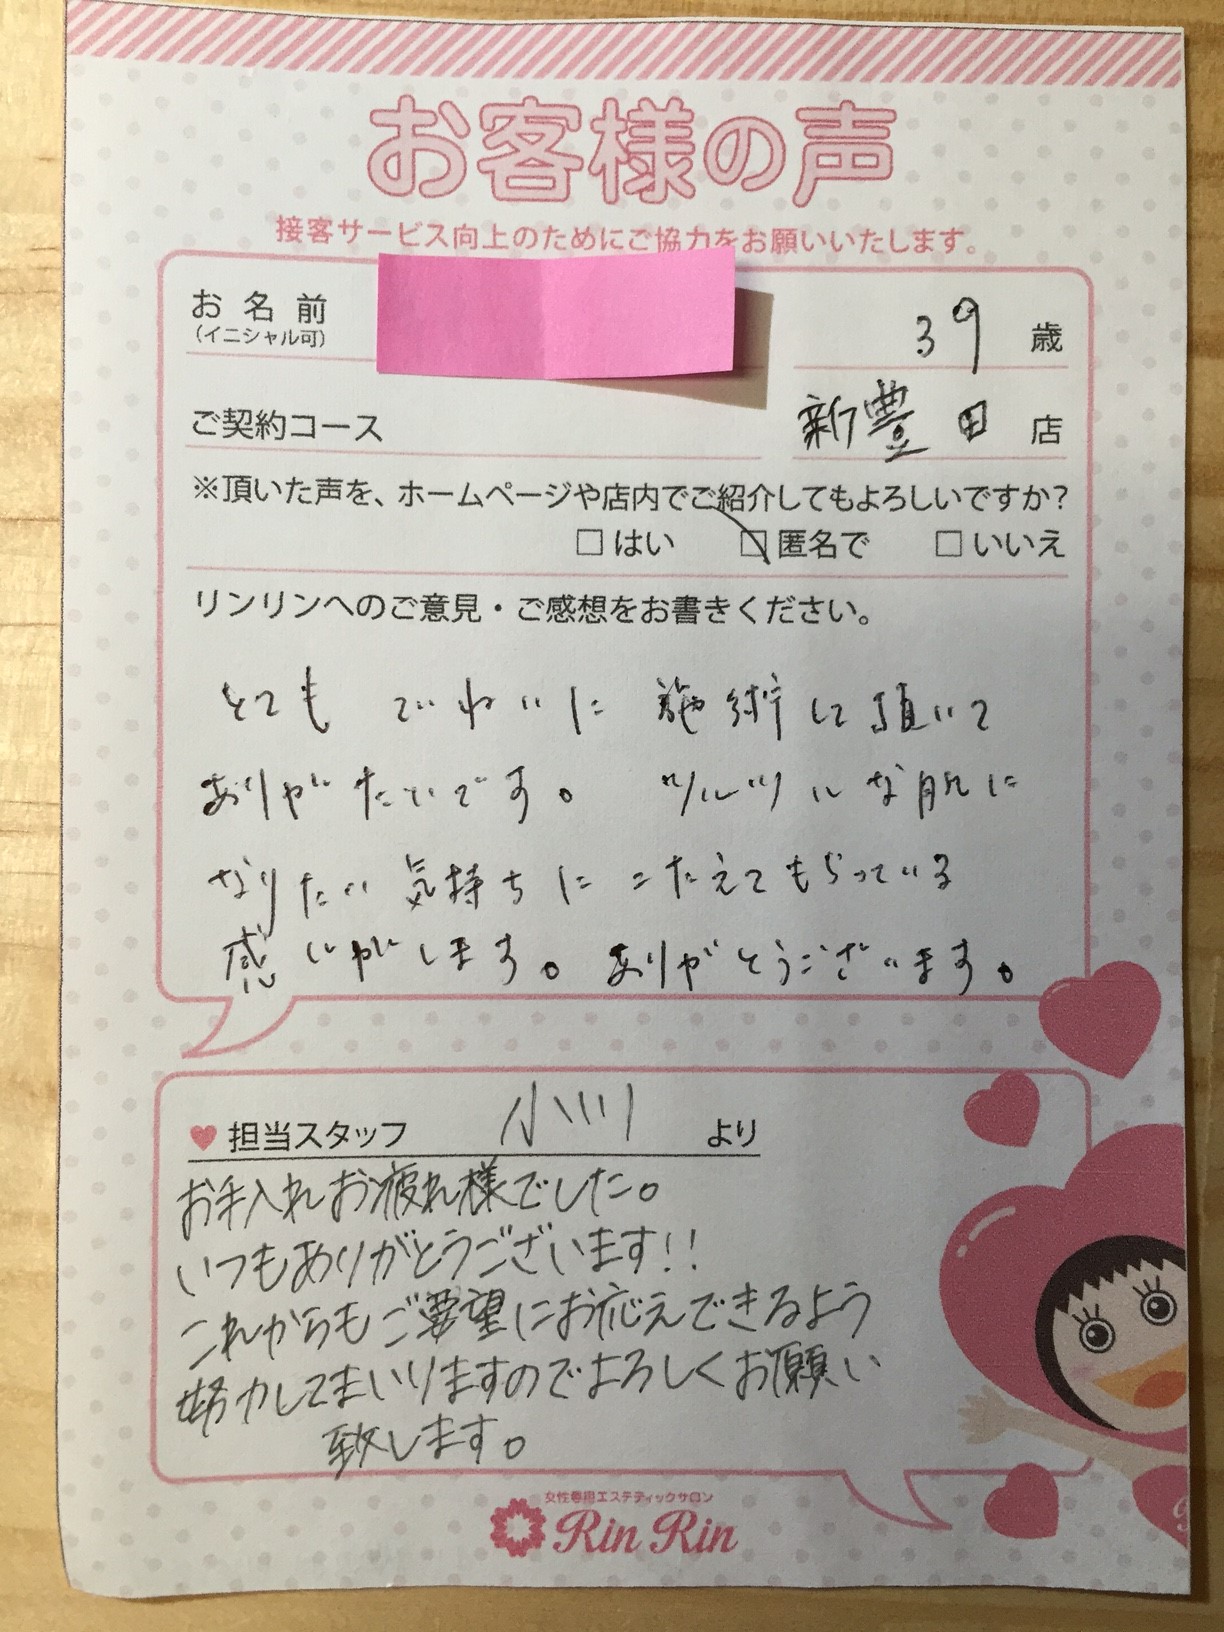 お客様の声
接客サービス向上のためにご協力をお願いいたします。
お名前
(イニシャル可)
39 歳
ご契約コース
新豊田 店
※頂いた声を、ホームページや店内でご紹介してもよろしいですか?
□はい □匿名で □いいえ
リンリンへのご意見・ご感想をお書きください。
とても ていねいに 施術して頂いて
ありがたいです。 ツルツルな肌に
なりたい気持ちにこたえてもらっている
感じがします。ありがとうございます。
♥担当スタッフ 小川 より
お手入れお疲れ様でした。
いつもありがとうございます!!
これからもご要望にお応えできるよう
努力してまいりますのでよろしくお願い
致します。
女性専用エステティックサロン
Rin Rin